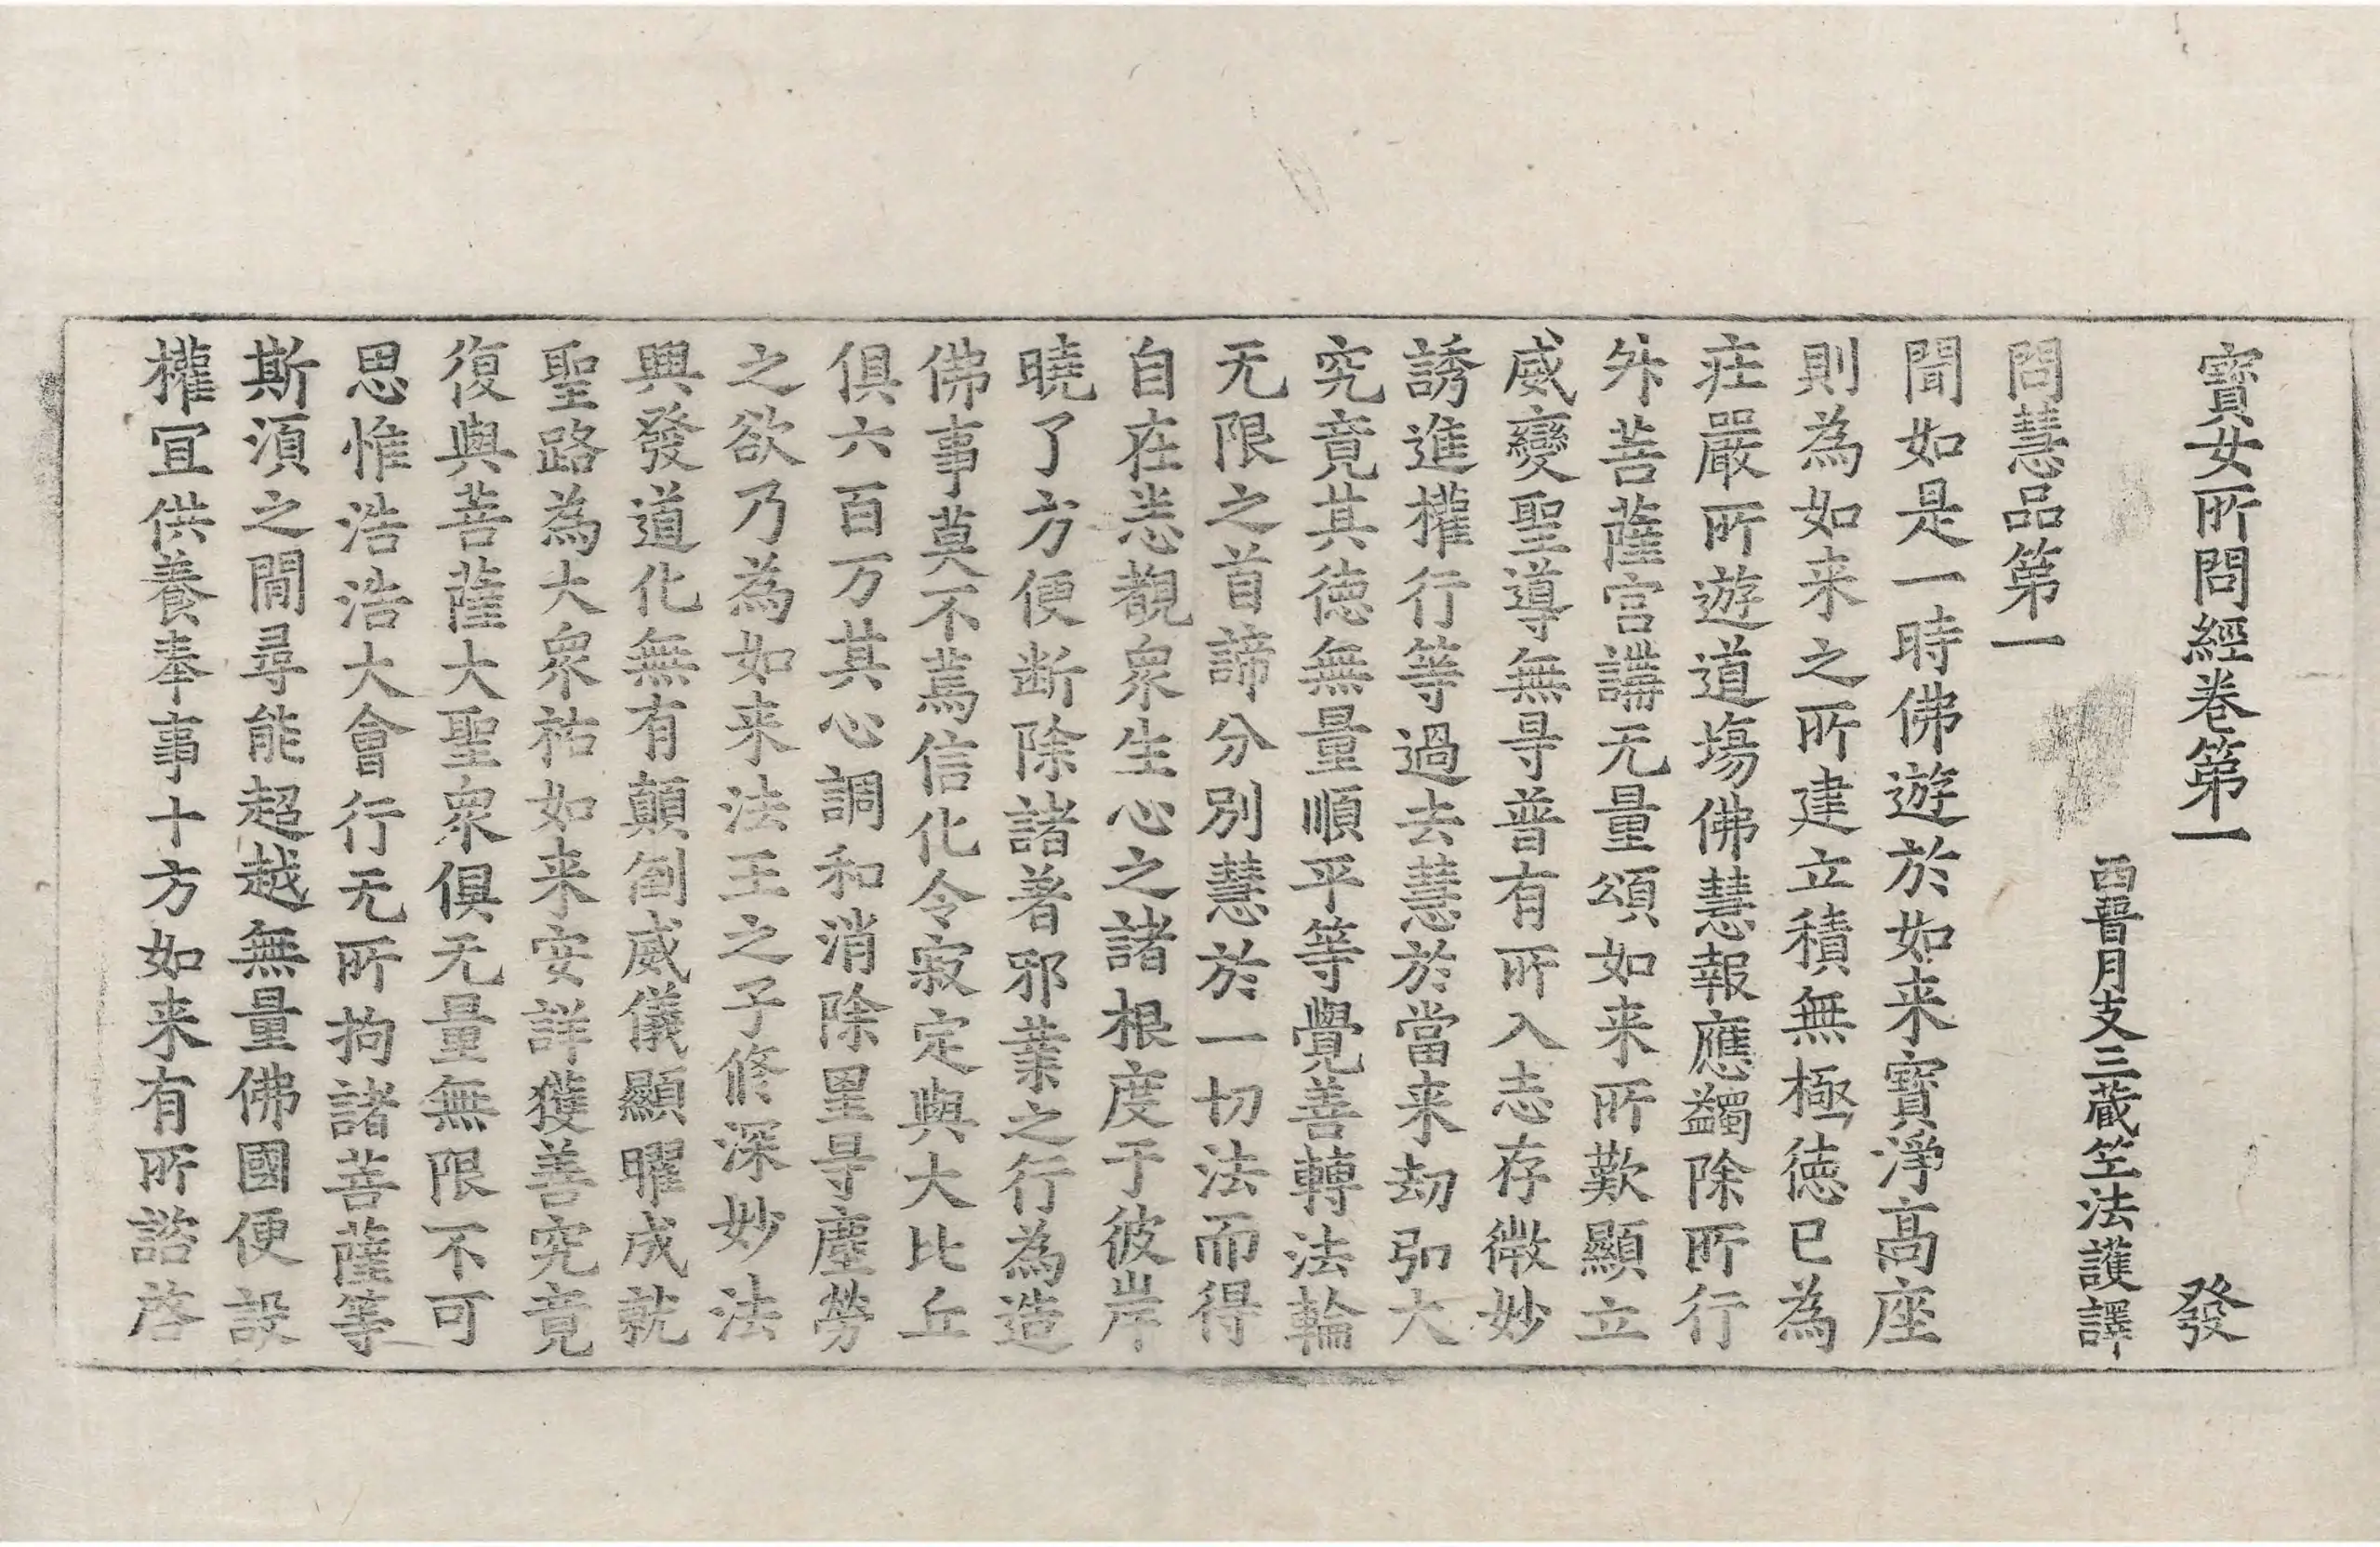 寶女所問經卷第一　發
西晉月支三藏竺法護譯
問慧品第一
聞如是一時佛遊於如来寶淨髙座
則為如来之所建立積無極徳已為
庄嚴所遊道塲佛慧報應蠲除所行
外菩薩宫講无量頌如来所歎顯立
威變聖導無㝵普有所入志存微妙
誘進權行等過去慧於當来劫弘大
究竟其徳無量順平等覺善轉法輪
无限之首諦分別慧於一切法而得
自在悉覩衆生心之諸根度于彼岸
曉了方便断除諸著邪業之行為造
佛事莫不蔫信化令寂定與大比丘
俱六百万其心調和消除罣㝵塵勞
之欲乃為如来法王之子修深妙法
興發道化無有顛倒威儀顯曜成就
聖路為大衆祐如来安詳獲善究竟
復與菩薩大聖衆俱无量無限不可
思惟浩浩大會行无所拘諸菩薩等
斯湏之閒尋能超越無量佛國便設
權冝供養奉事十方如来有所諮啓